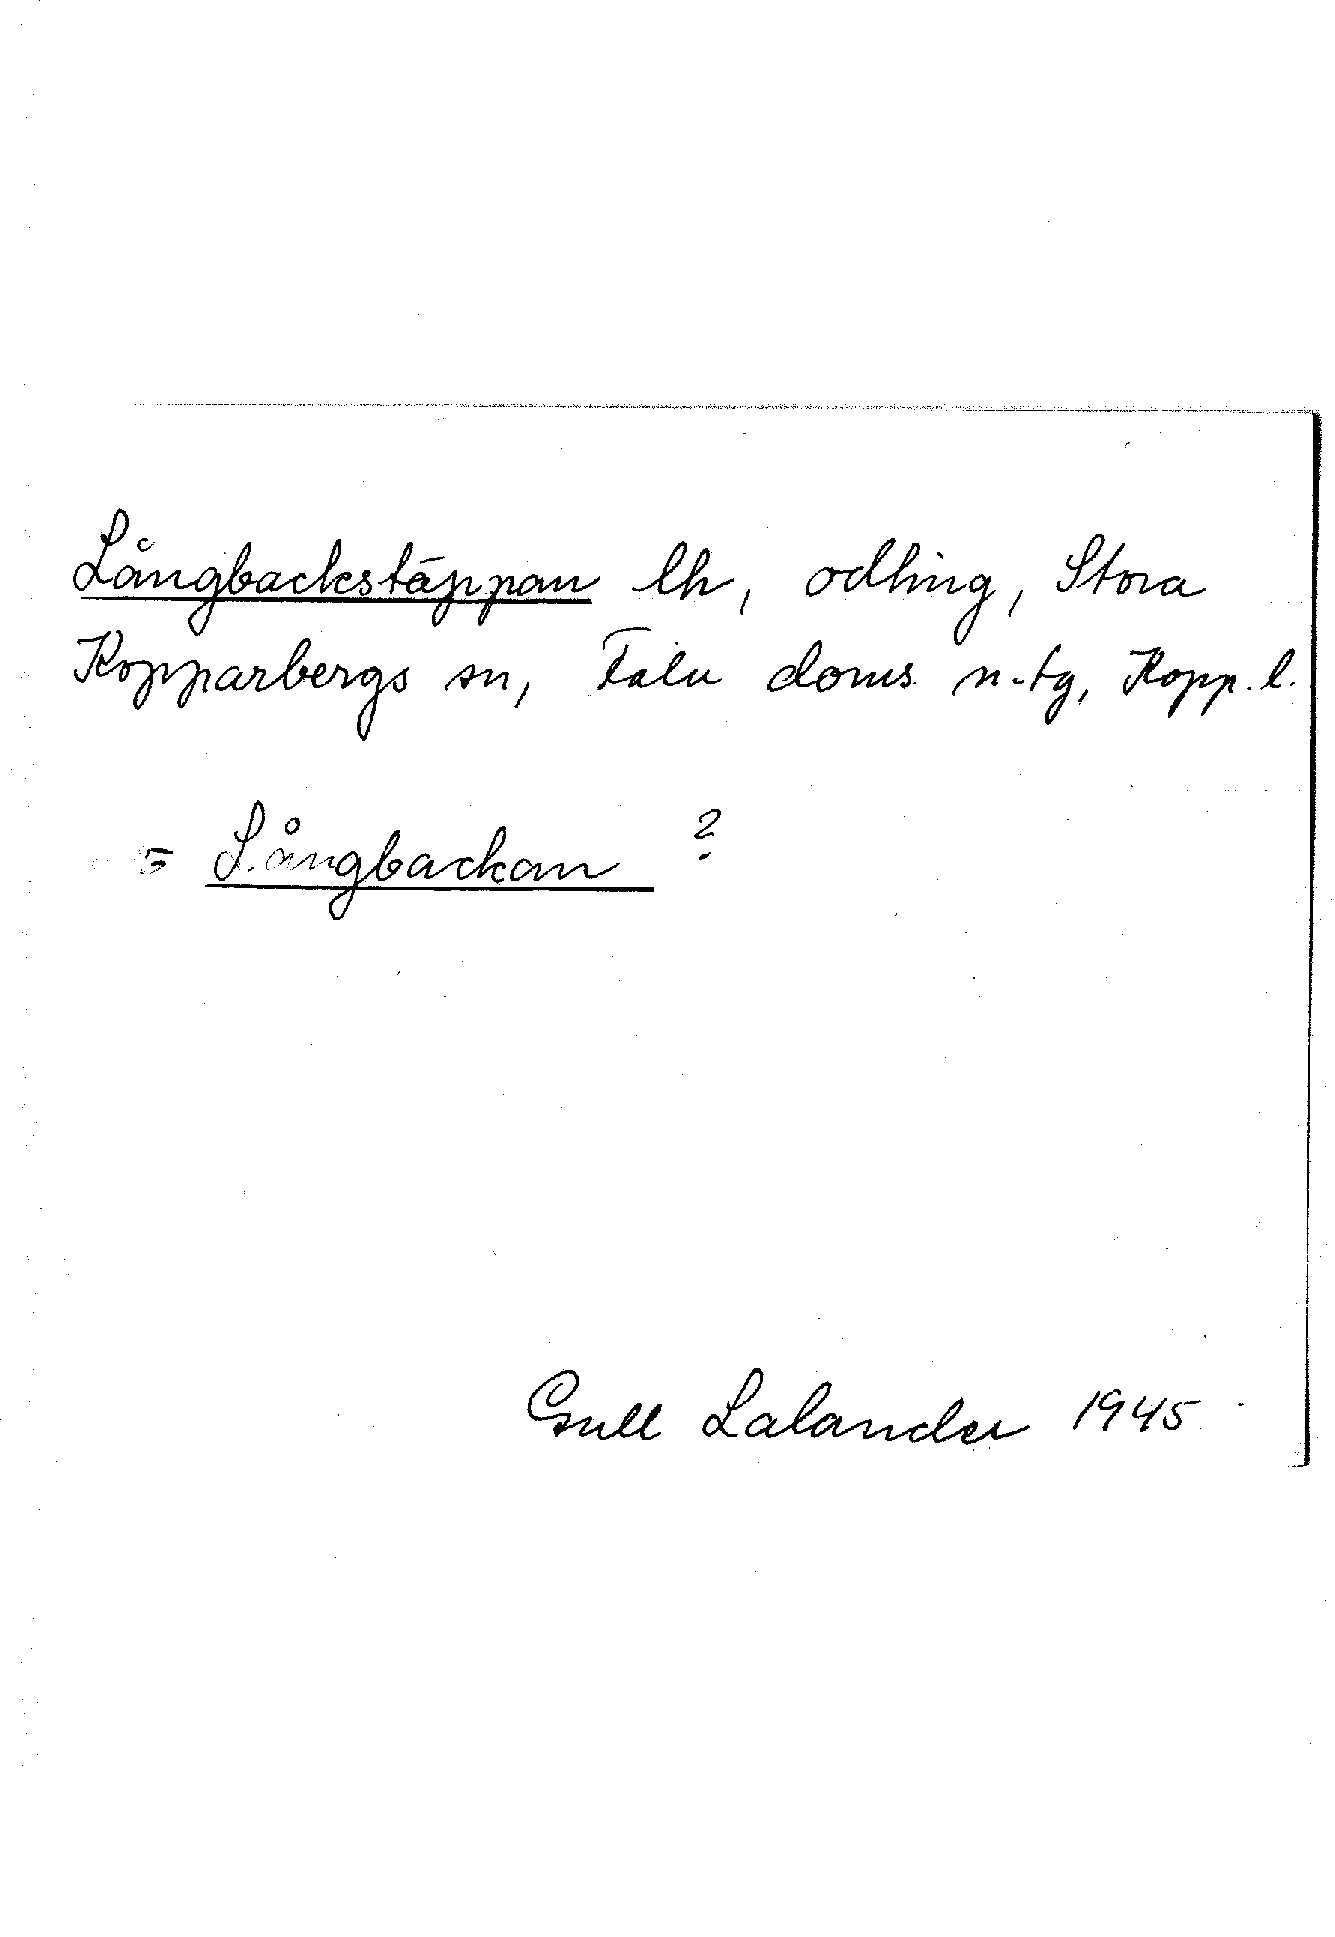 Långbackstäppan lh, odling, Stora
Kopparbergs sn, Falu doms n-tg, Kopp. l.
= Långbackan ?
Gull Lalander 1945